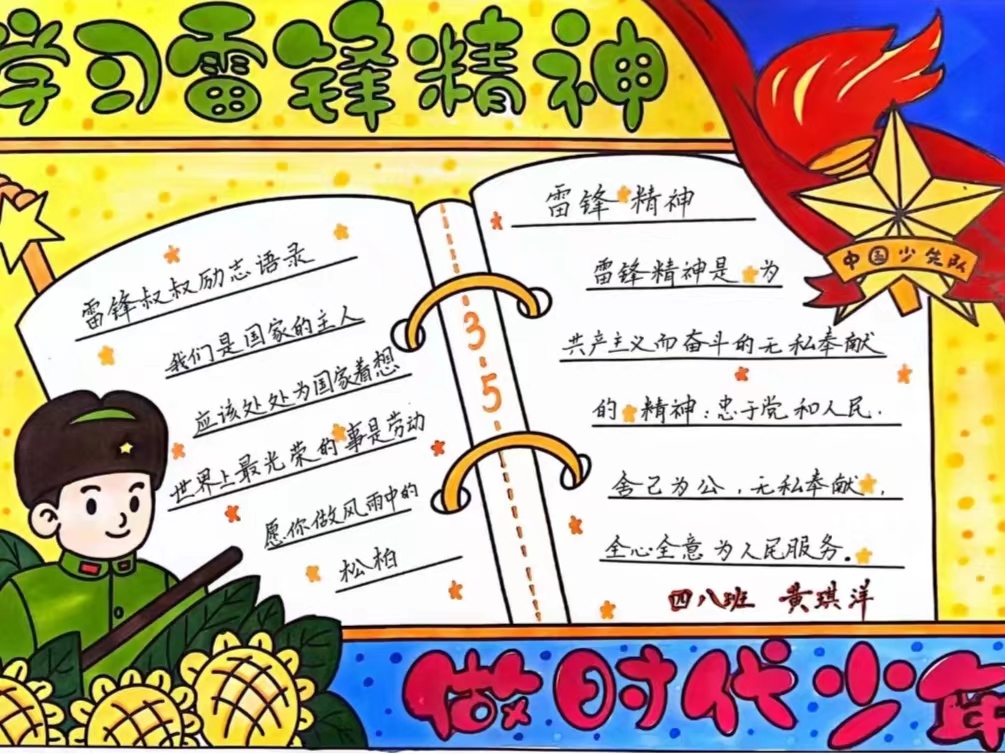 学习雷锋精神
雷锋叔叔励志语录
我们是国家的主人
应该处处为国家着想
世界上最光荣的事是劳动
愿你做风雨中的
松柏
3.5
雷锋精神
雷锋精神是为
共产主义而奋斗的无私奉献
的精神:忠于党和人民.
舍己为公,无私奉献,
全心全意为人民服务。
四八班 黄琪洋
中国少先队
做时代少年